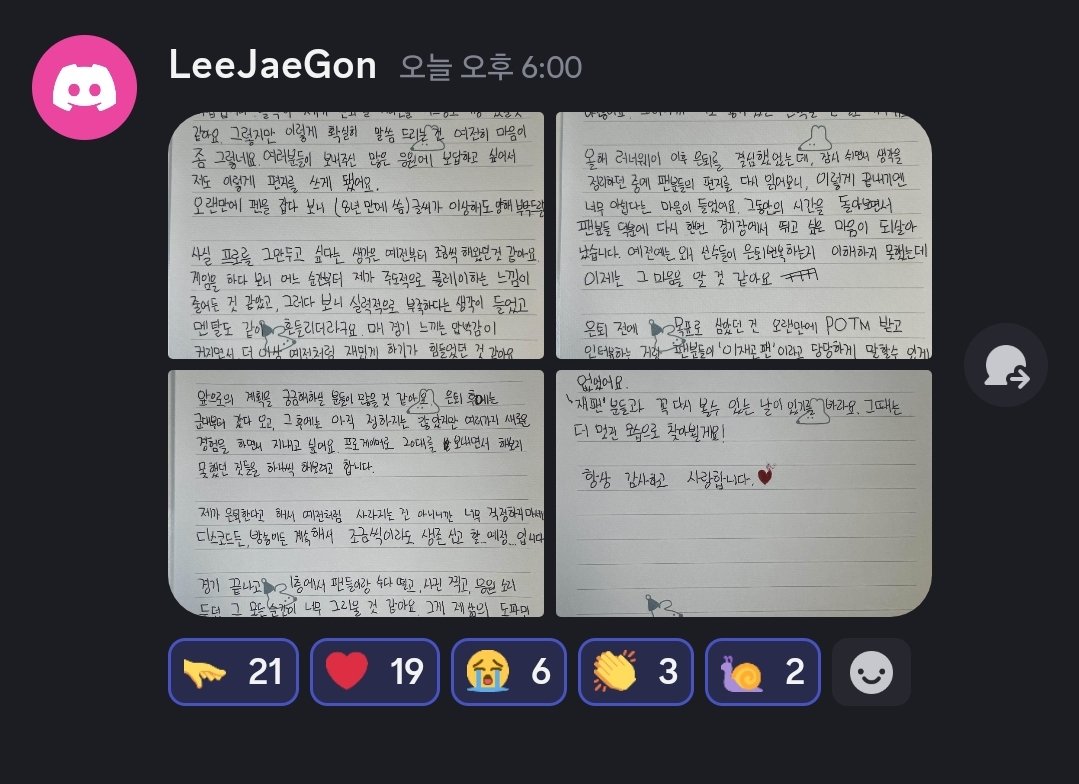 LeeJaeGon 오늘 오후 6:00
같아요. 그렇지만 이렇게 확실히 말씀 드리는 건 여전히 마음이
좀 그렇네요. 여러분들이 보내주신 많은 응원에 보답하고 싶어서
저도 이렇게 편지를 쓰게 됐어요.
오랜만에 펜을 잡다 보니 (8년 만에 씀) 글씨가 이상해도 양해 부탁드
사실 프로를 그만두고 싶다는 생각은 예전부터 조금씩 해왔던 것 같아요.
게임을 하다 보니 어느 순간부터 제가 주도적으로 플레이하는 느낌이
줄어든 것 같았고, 그러다 보니 실력적으로 부족하다는 생각이 들었고
멘탈도 같이 흔들리더라구요. 매 경기 느끼는 압박감이
커지면서 더 이상 예전처럼 재밌게 하기가 힘들었던 것 같아요
올해 러너웨이 이후 은퇴를 결심했었는데, 잠시 쉬면서 생각을
정리하던 중에 팬분들의 편지를 다시 읽어보니, 이렇게 끝내기엔
너무 아쉽다는 마음이 들었어요. 그동안의 시간을 돌아보면서
팬분들 덕분에 다시 한번 경기장에서 뛰고 싶은 마음이 되살아
났습니다. 예전에는 왜 선수들이 은퇴번복하는지 이해하지 못했는데
이제는 그 마음을 알 것 같아요
은퇴 전에 목표로 삼았던 건 오랜만에 POTM 받고
인터뷰하는 거랑 팬분들이 '이재곤팬'이라고 당당하게 말할수 있게
앞으로의 계획을 궁금해하실 분들이 많을 것 같아요. 은퇴 후에는
군대부터 갔다 오고, 그 후에는 아직 정하지는 않았지만 여러가지 새로운
경험을 하면서 지내고 싶어요. 프로게이머로 20대를 보내면서 해보지
못했던 것들을 하나씩 해보려고 합니다.
제가 은퇴한다고 해서 예전처럼 사라지는 건 아니니깐 너무 걱정하지마세
디스코드든, 방송이든 계속해서 조금씩이라도 생존 신고 할...예정...입니다
경기 끝나고 1층에서 팬들이랑 수다 떨고, 사진 찍고, 응원 소리
듣던 그 모든 순간이 너무 그리울 것 같아요. 그게 제 삶의 도파민
없었어요.
'재팬'분들과 꼭 다시 볼수 있는 날이 있기를 바라요. 그때는
더 멋진 모습으로 찾아뵐게요!
항상 감사하고 사랑합니다.
21 19 6 3 2